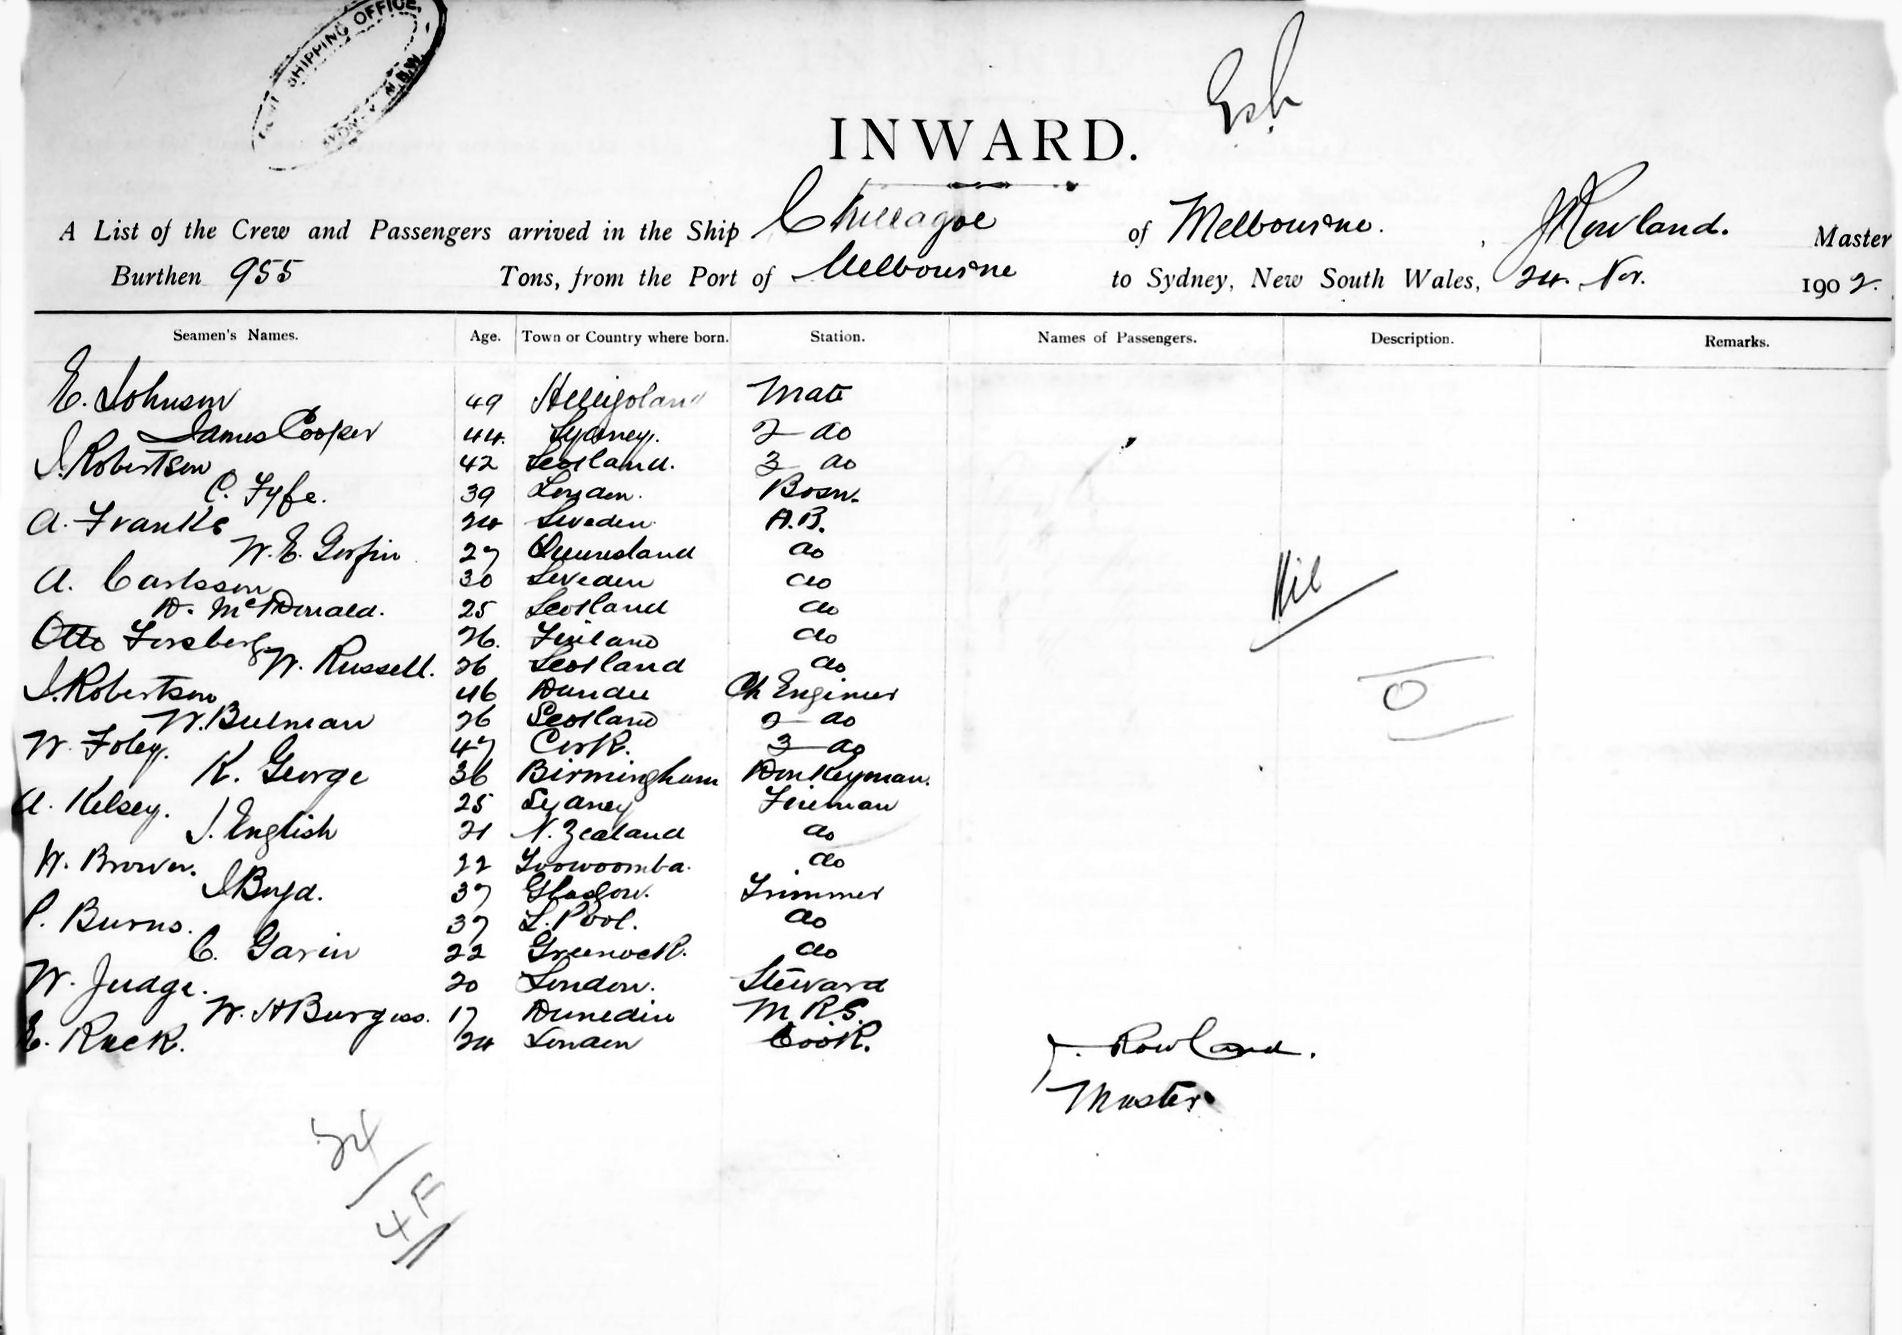 SHIPPING OFFICE,
SYDNEY N.S.W.
INWARD.
A List of the Crew and Passengers arrived in the Ship Chillagoe of Melbourne. J Rowland. Master
Burthen 955 Tons, from the Port of Melbourne to Sydney, New South Wales, 24. Nov. 1902.
Seamen's Names. Age. Town or Country where born. Station. Names of Passengers. Description. Remarks.
E. Johnson 49 Heligoland Mate
James Cooper 44. Sydney. 2 do
J. Robertson 42 Scotland. 3 do
C. Fyfe. 39 London. Bosn.
A. Franke 24 Sweden A.B.
W. E. 27 Queensland do
A. Carlsson 30 Sweden do
D. McDonald. 25 Scotland do
Otto Forsberg 26. Finland do
W. Russell. 26 Scotland do
J. Robertson 46 Dundee Ch Engineer
W. Bulman 26 Scotland 2 do
W. Foley. 47 Cork. 3 do
K. George 36 Birmingham Donkeyman.
A. Kelsey. 25 Sydney Fireman
J. English 21 N. Zealand do
H. Brown. 22 Toowoomba. do
J Boyd. 37 Glasgow. Trimmer
P. Burns. 37 L. Pool. do
C. Gavin 22 Greenock. do
W. Judge. 20 London. Steward
W. H Burgess. 17 Dunedin M.R.S.
E. Ruck. 24 London Cook.
Nil
O
J. Rowland.
Master
24
4F